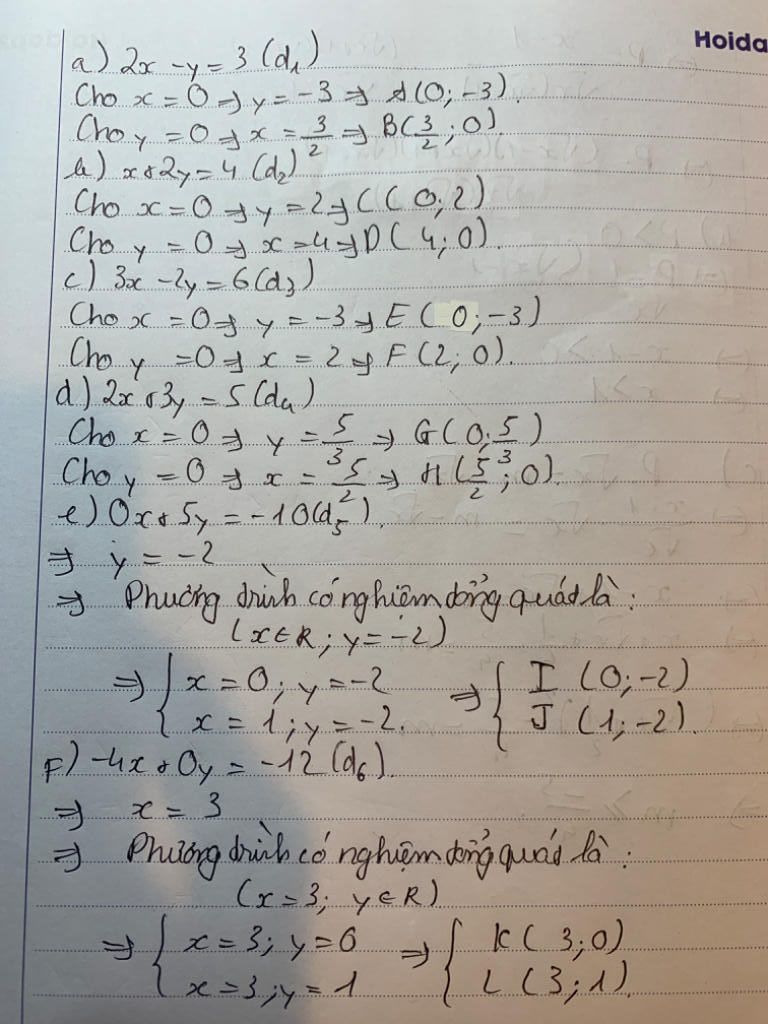 Hoida
a) 2x - y = 3 (d₁)
Cho x = 0 => y = -3 => A(0; -3).
Cho y = 0 => x = 3/2 => B(3/2; 0).
b) x + 2y = 4 (d₂)
Cho x = 0 => y = 2 => C(0; 2)
Cho y = 0 => x = 4 => D(4; 0).
c) 3x - 2y = 6 (d₃)
Cho x = 0 => y = -3 => E(0; -3)
Cho y = 0 => x = 2 => F(2; 0).
d) 2x + 3y = 5 (d₄)
Cho x = 0 => y = 5/3 => G(0; 5/3)
Cho y = 0 => x = 5/2 => H(5/2; 0).
e) 0x + 5y = -10 (d₅).
=> y = -2
=> Phương trình có nghiệm tổng quát là:
(x ∈ R; y = -2)
=> { x = 0; y = -2 => { I (0; -2)
x = 1; y = -2. J (1; -2).
F) -4x + 0y = -12 (d₆).
=> x = 3
=> Phương trình có nghiệm tổng quát là:
(x = 3; y ∈ R)
=> { x = 3; y = 0 => { K (3; 0)
x = 3; y = 1 L (3; 1).